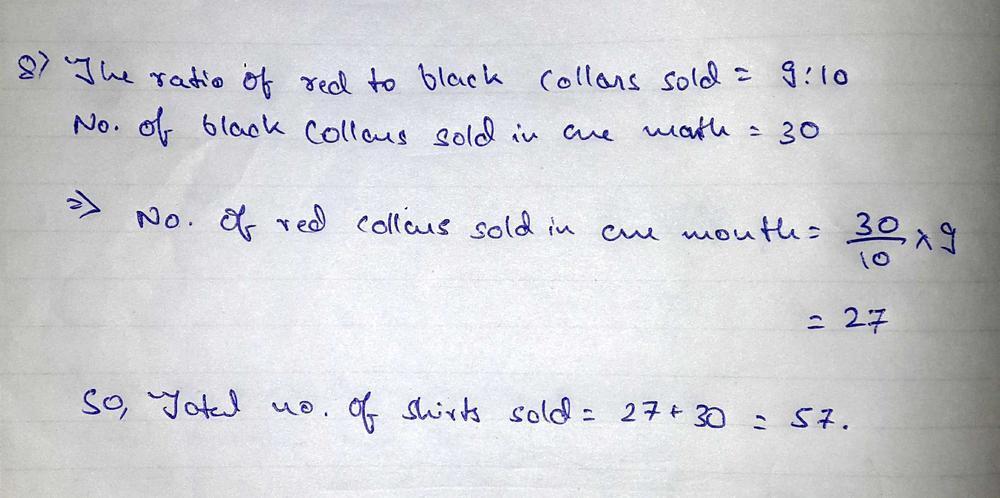 8) The ratio of red to black Collars sold = 9:10
No. of black Collars sold in one month = 30
⇒ No. of red collars sold in one month = 30/10 × 9
= 27
So, Total no. of shirts sold = 27 + 30 = 57.